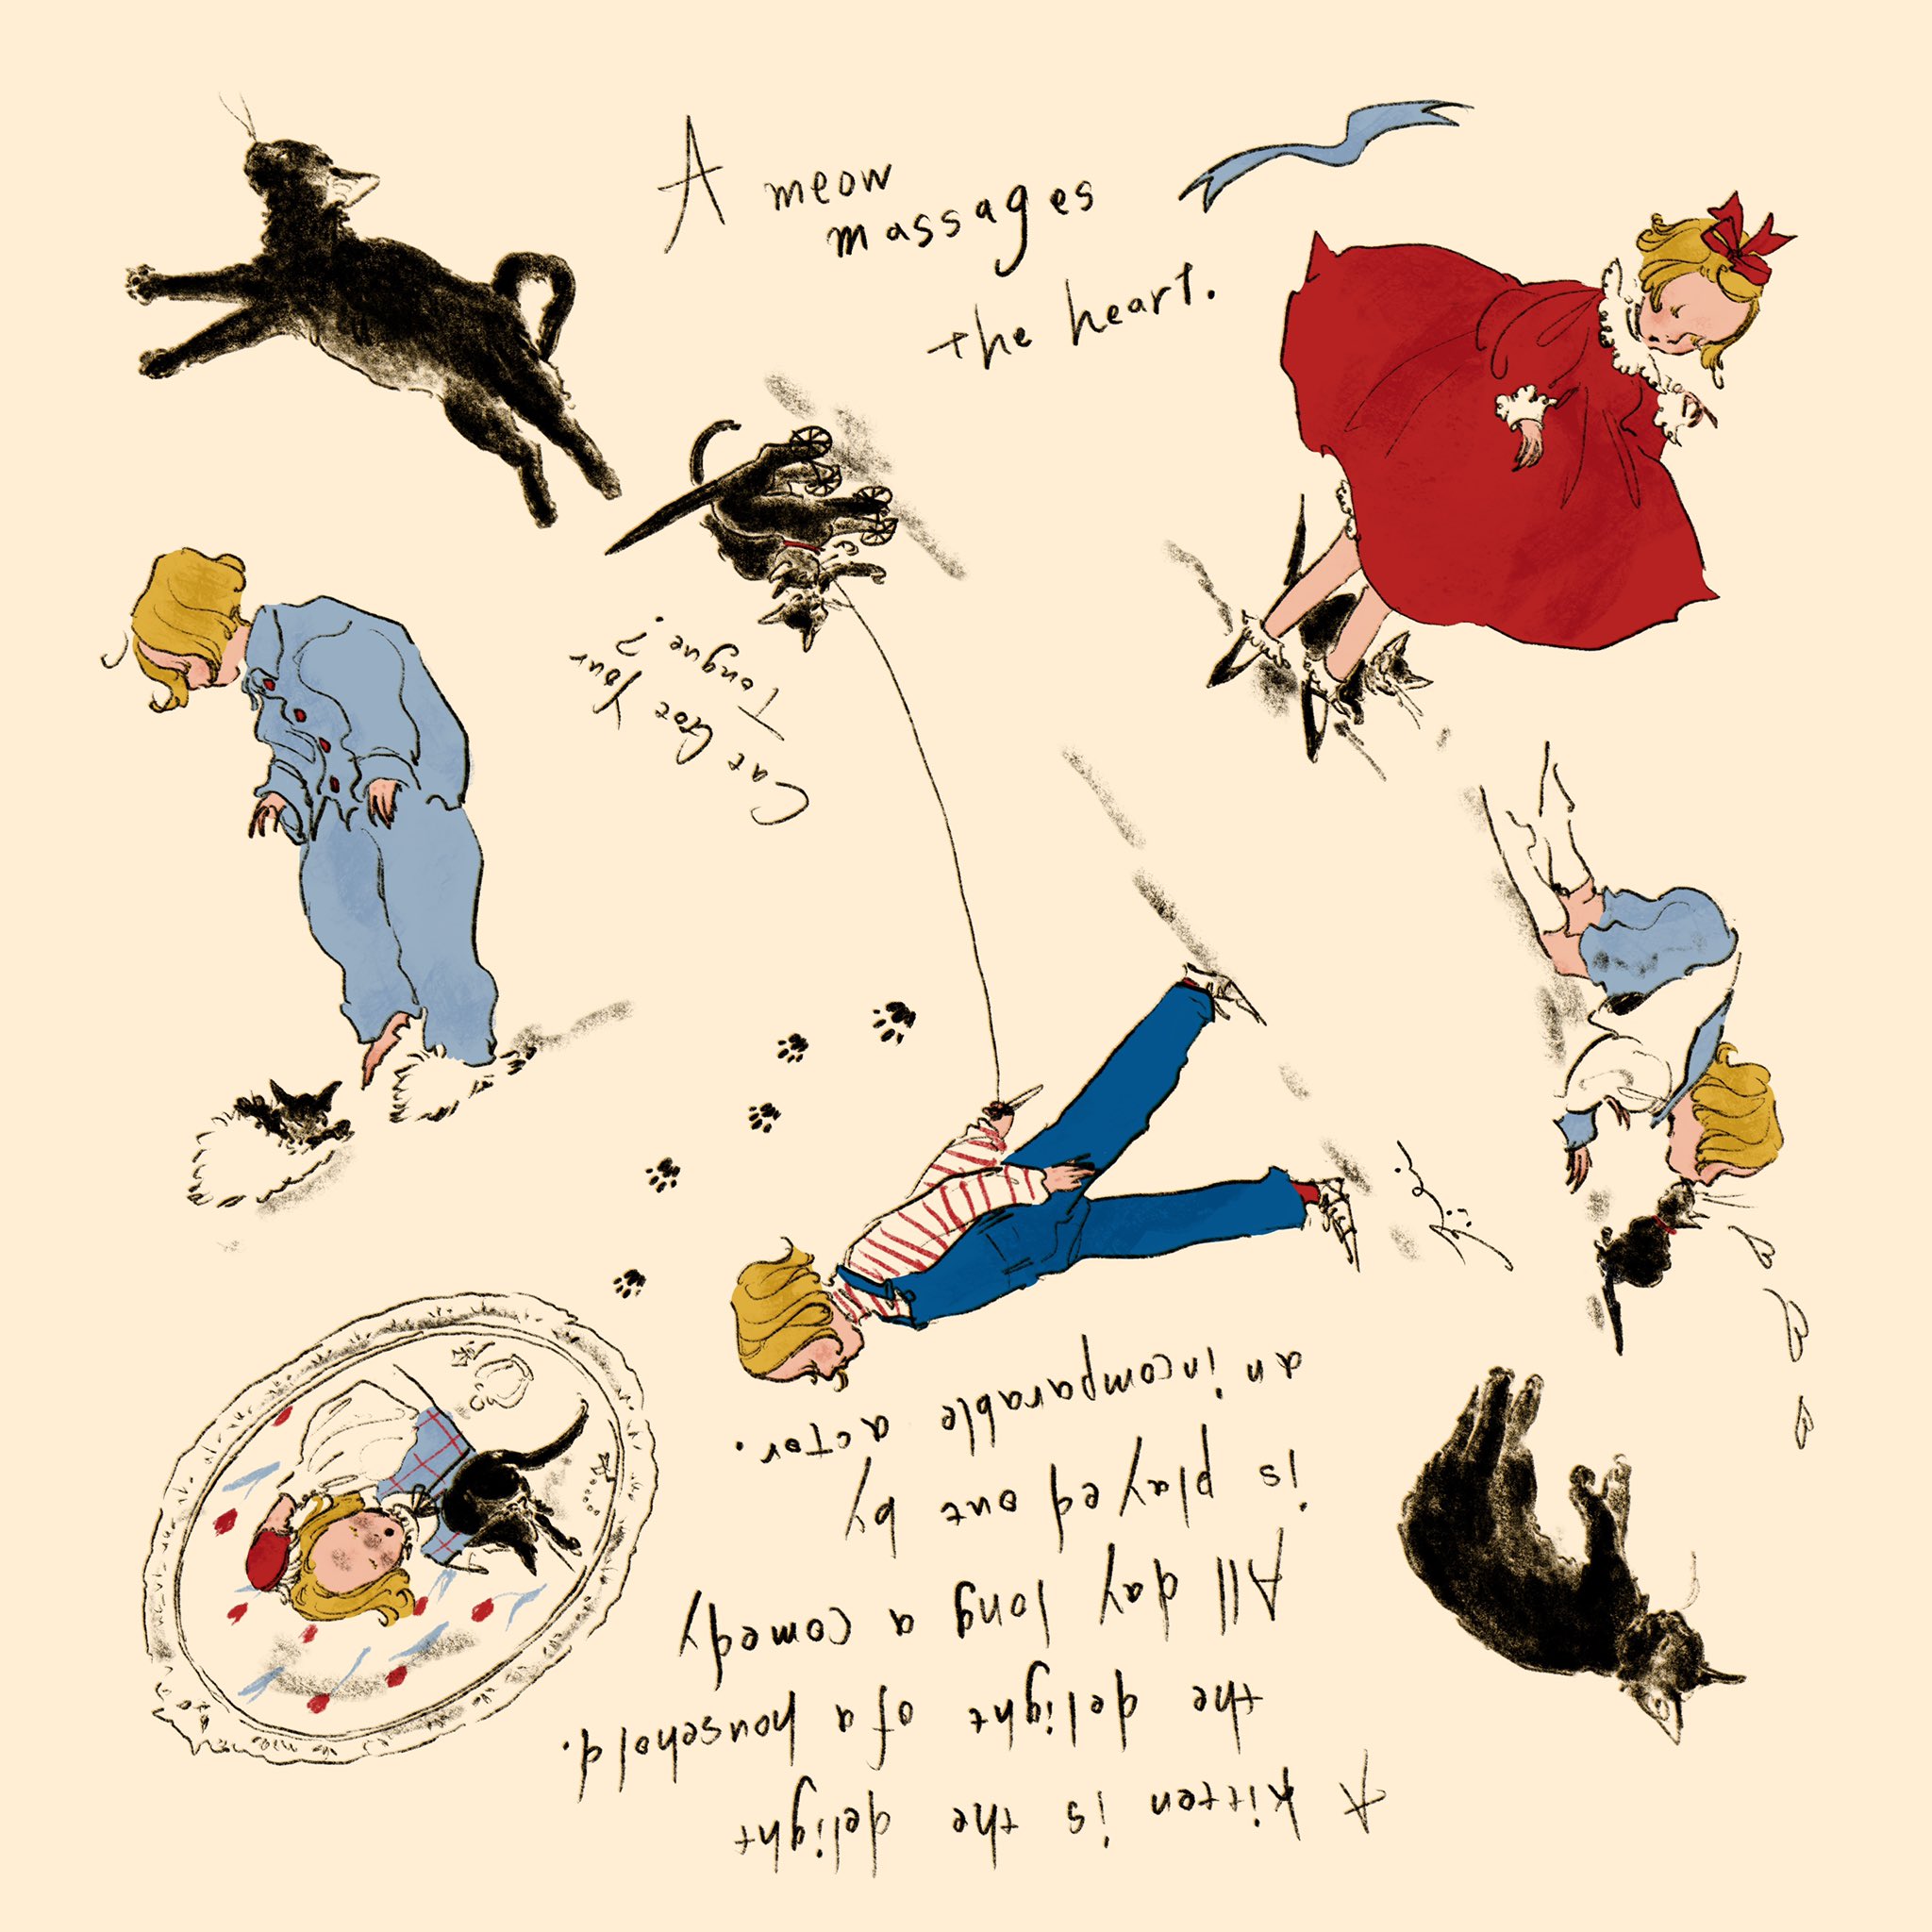 A meow
massages
the heart.
Cat Got Your
Tongue?
A kitten is the delight
the delight of a household.
All day long a comedy
is played out by
an incomparable actor.